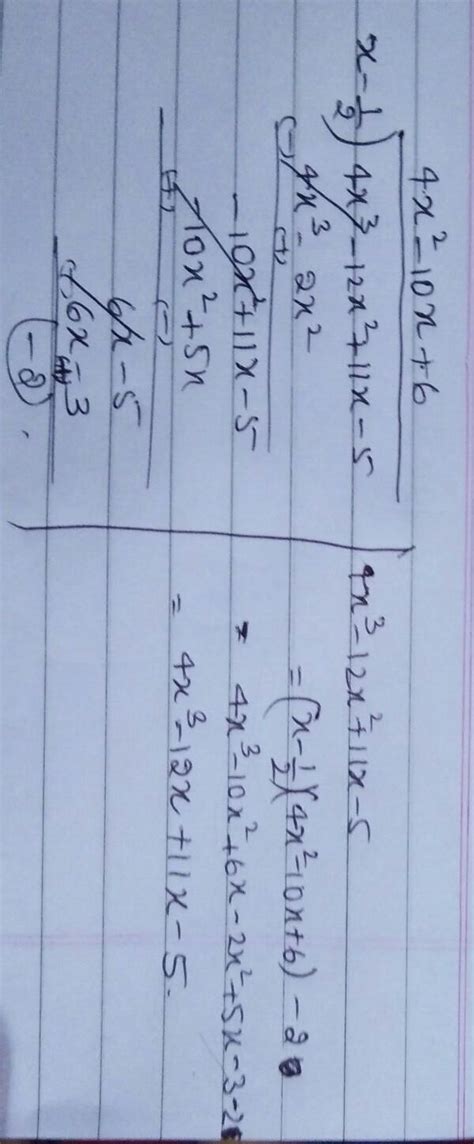 4x² - 10x + 6
x - 1/2 ) 4x³ - 12x² + 11x - 5
4x³ - 2x²
(-) (+)
-10x² + 11x - 5
-10x² + 5x
(+) (-)
6x - 5
6x - 3
(-) (+)
-2
4x³ - 12x² + 11x - 5
= (x - 1/2)(4x² - 10x + 6) - 2
= 4x³ - 10x² + 6x - 2x² + 5x - 3 - 2
= 4x³ - 12x + 11x - 5.